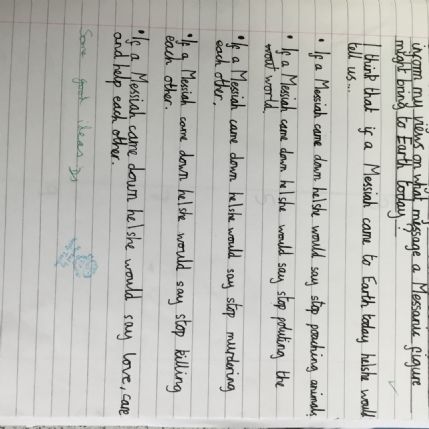 inform my views on what message a Messianic figure
might bring to Earth today?
I think that if a Messiah came to Earth today he/she would
tell us...
• If a Messiah came down he/she would say stop poaching animals
• If a Messiah came down he/she would say stop poluting the
world.
• If a Messiah came down he/she would say stop murdering
each other.
• If a Messiah came down he/she would say stop killing
each other.
• If a Messiah came down he/she would say love, care
and help each other.
Some good ideas